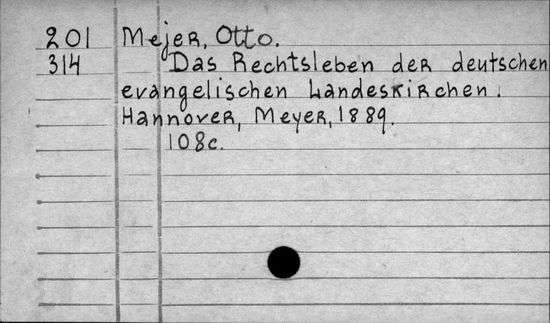 201 Mejer, Otto.
314 Das Rechtsleben der deutschen
evangelischen Landeskirchen.
Hannover, Meyer, 1889.
108c.